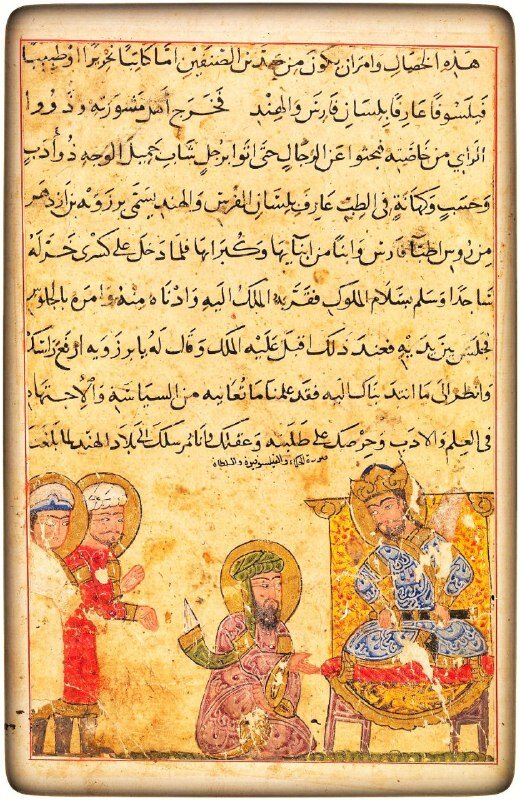 هذه الخصال وامران يكون من احد من الصنفين اما كاتبا نحريرا او طبيبا
فيلسوفا عارفا بلسان فارس والهند فخرج اهل مشورته وذووا
الراي من خاصته فبحثوا عن الرجال حتى اتوا برجل شاب جميل الوجه ذو أدب
وحسب وكهانة في الطب عارف بلسان الفرس والهند يسمى برزويه بن ازدهر
من روس اطبآ فارس وابنا من ابنايها وكبرايها فلما دخل على كسرى خر له
ساجدا وسلم بسلام الملوك فقربه الملك اليه وادناه منه وامره بالجلوس
فجلس بين يديه فعند ذلك اقبل عليه الملك وقال له يا برزويه ارفع راسك
وانظر الى ما انتدبناك اليه فقد علمنا ما تعانيه من السياسة والاجتهاد
في العلم والادب وحرصك على طلبه وعقلك فانا نمر سلك الى بلاد الهند لما بلغنا
صورة